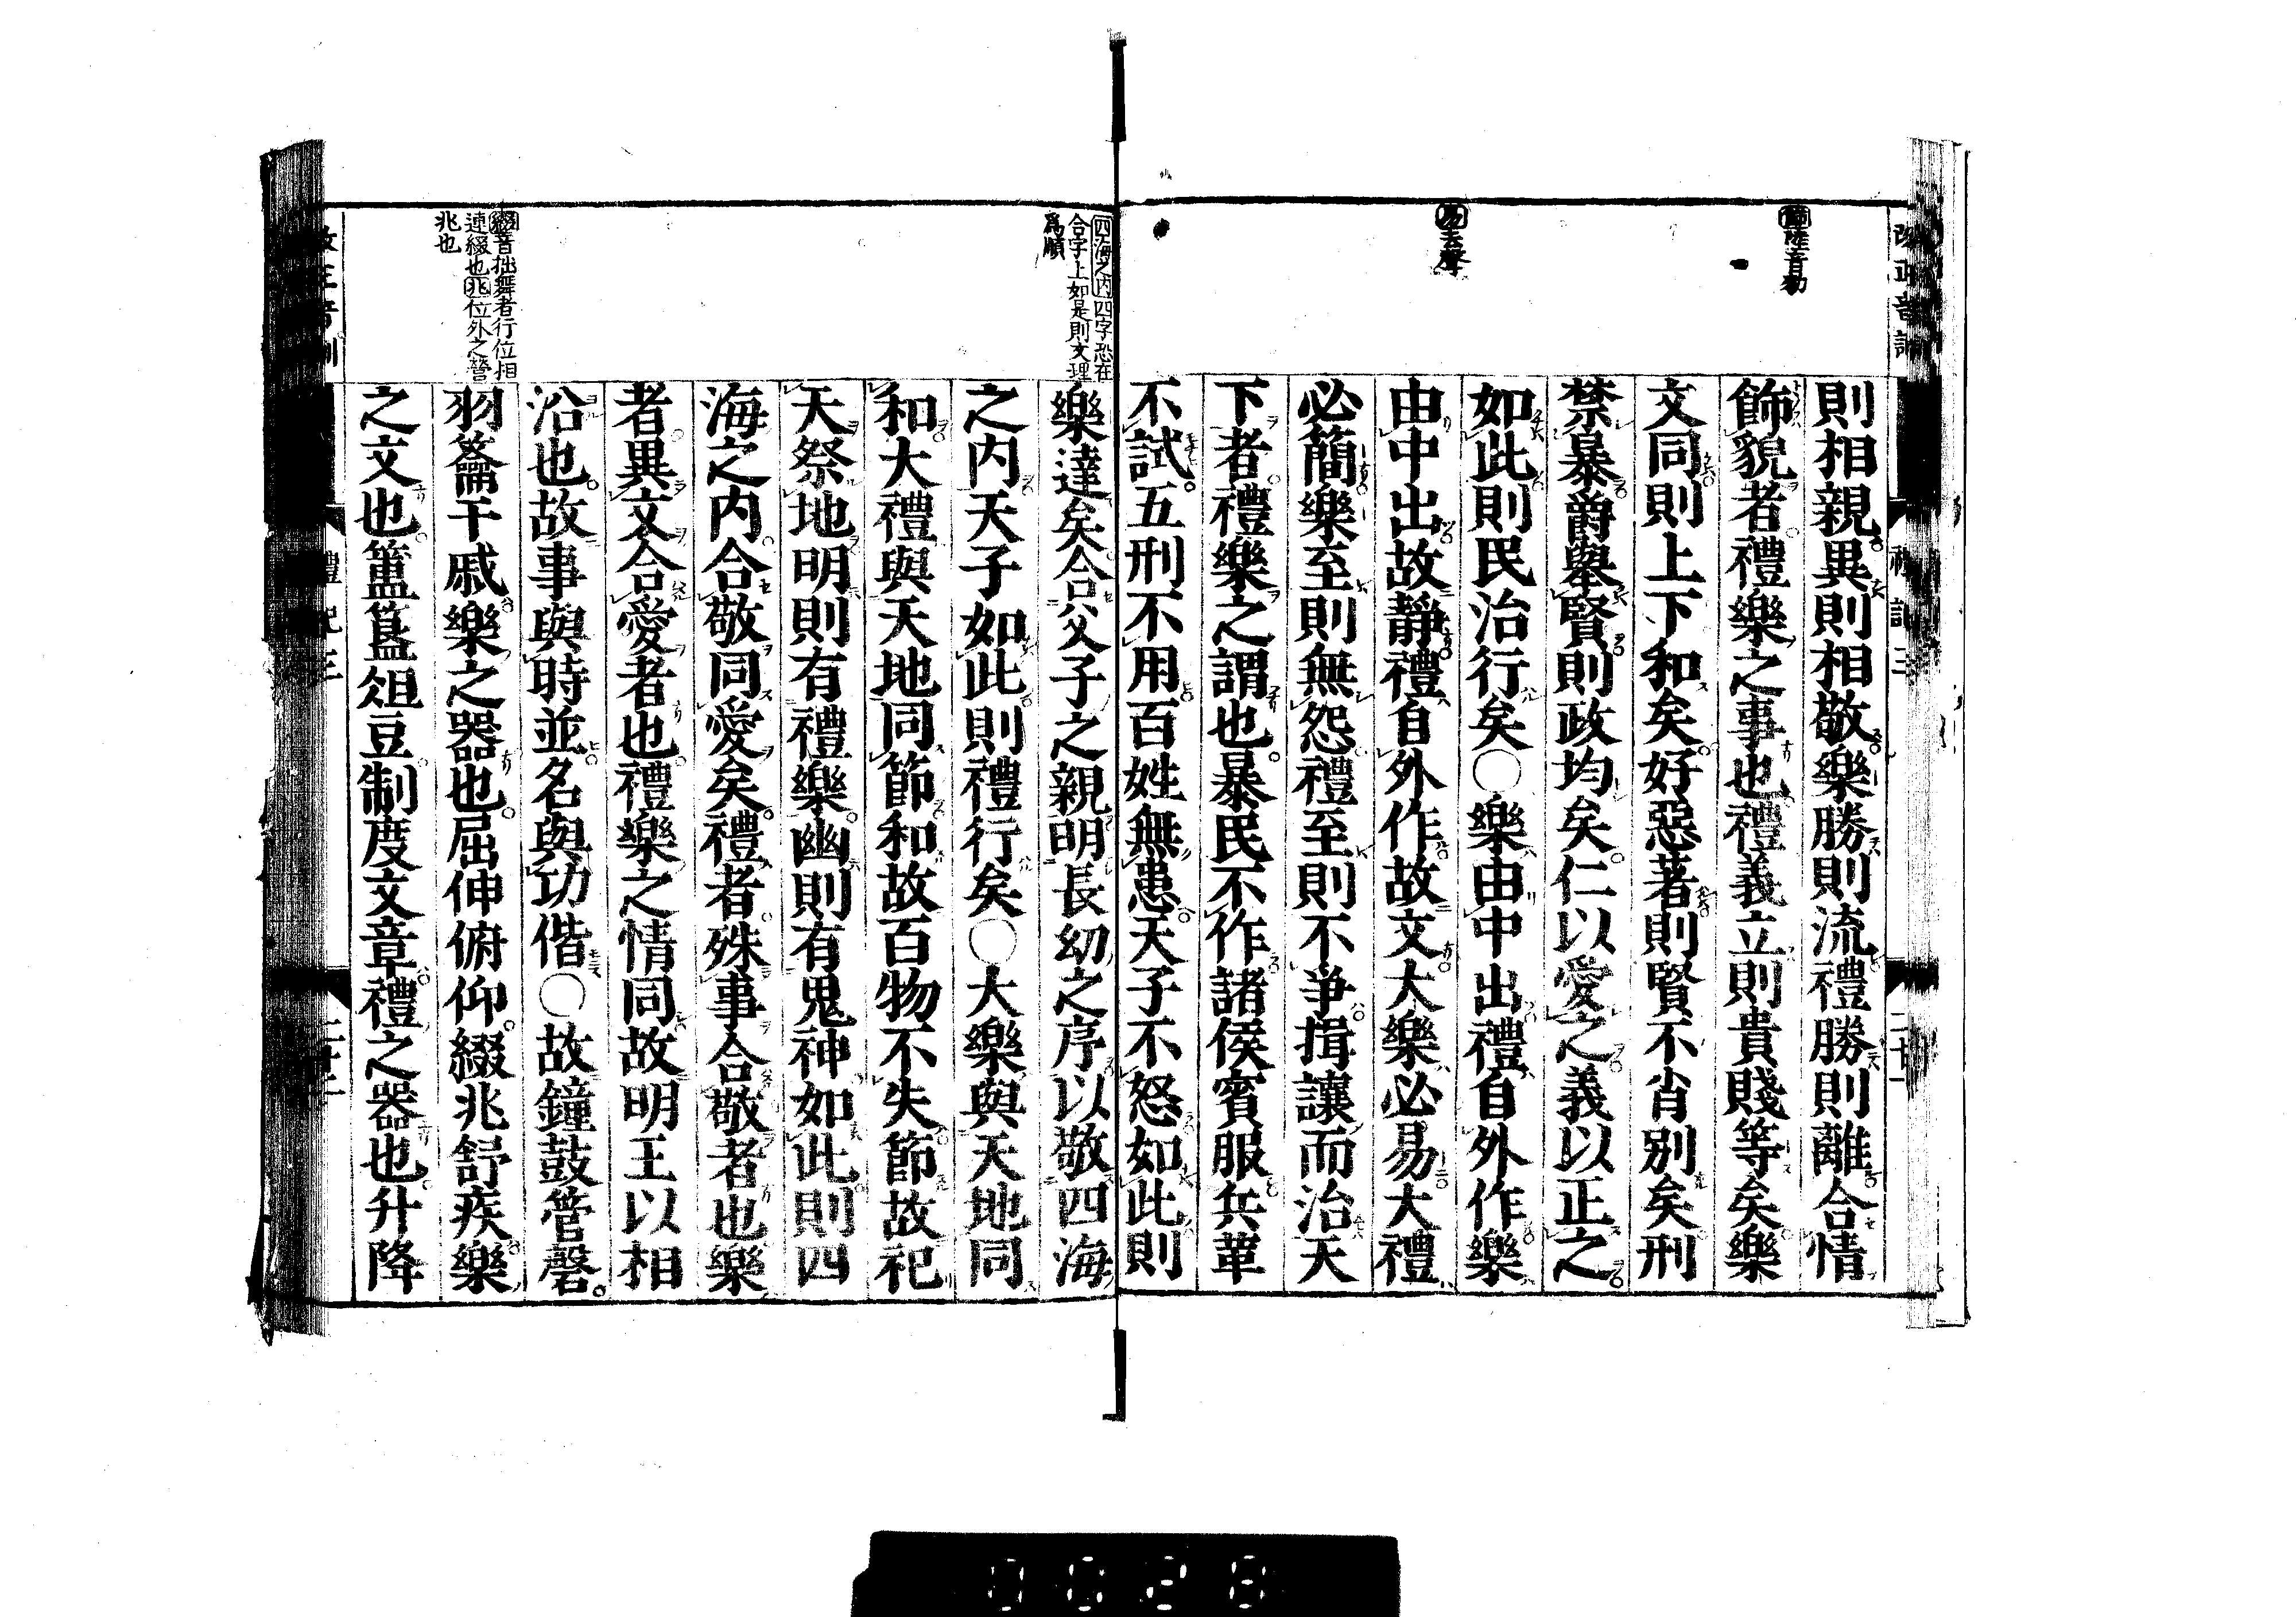 飾陸音勑
易去聲
則相親異則相敬樂勝則流禮勝則離合情
飾貌者禮樂之事也禮義立則貴賤等矣樂
文同則上下和矣好惡著則賢不肖别矣刑
禁暴爵舉賢則政均矣仁以愛之義以正之
如此則民治行矣〇樂由中出禮自外作樂
由中出故靜禮自外作故文大樂必易大禮
必簡樂至則無怨禮至則不爭揖讓而治天
下者禮樂之謂也暴民不作諸侯賓服兵革
不試五刑不用百姓無患天子不怒如此則
四海之内四字恐在
合字上如是則文理
爲順
綴音拙舞者行位相
連綴也兆位外之營
兆也
樂達矣合父子之親明長幼之序以敬四海
之内天子如此則禮行矣〇大樂與天地同
和大禮與天地同節和故百物不失節故祀
天祭地明則有禮樂幽則有鬼神如此則四
海之内合敬同愛矣禮者殊事合敬者也樂
者異文合愛者也禮樂之情同故明王以相
沿也故事與時並名與功偕〇故鐘鼓管磬
羽籥干戚樂之器也屈伸俯仰綴兆舒疾樂
之文也簠簋俎豆制度文章禮之器也升降
禮記三